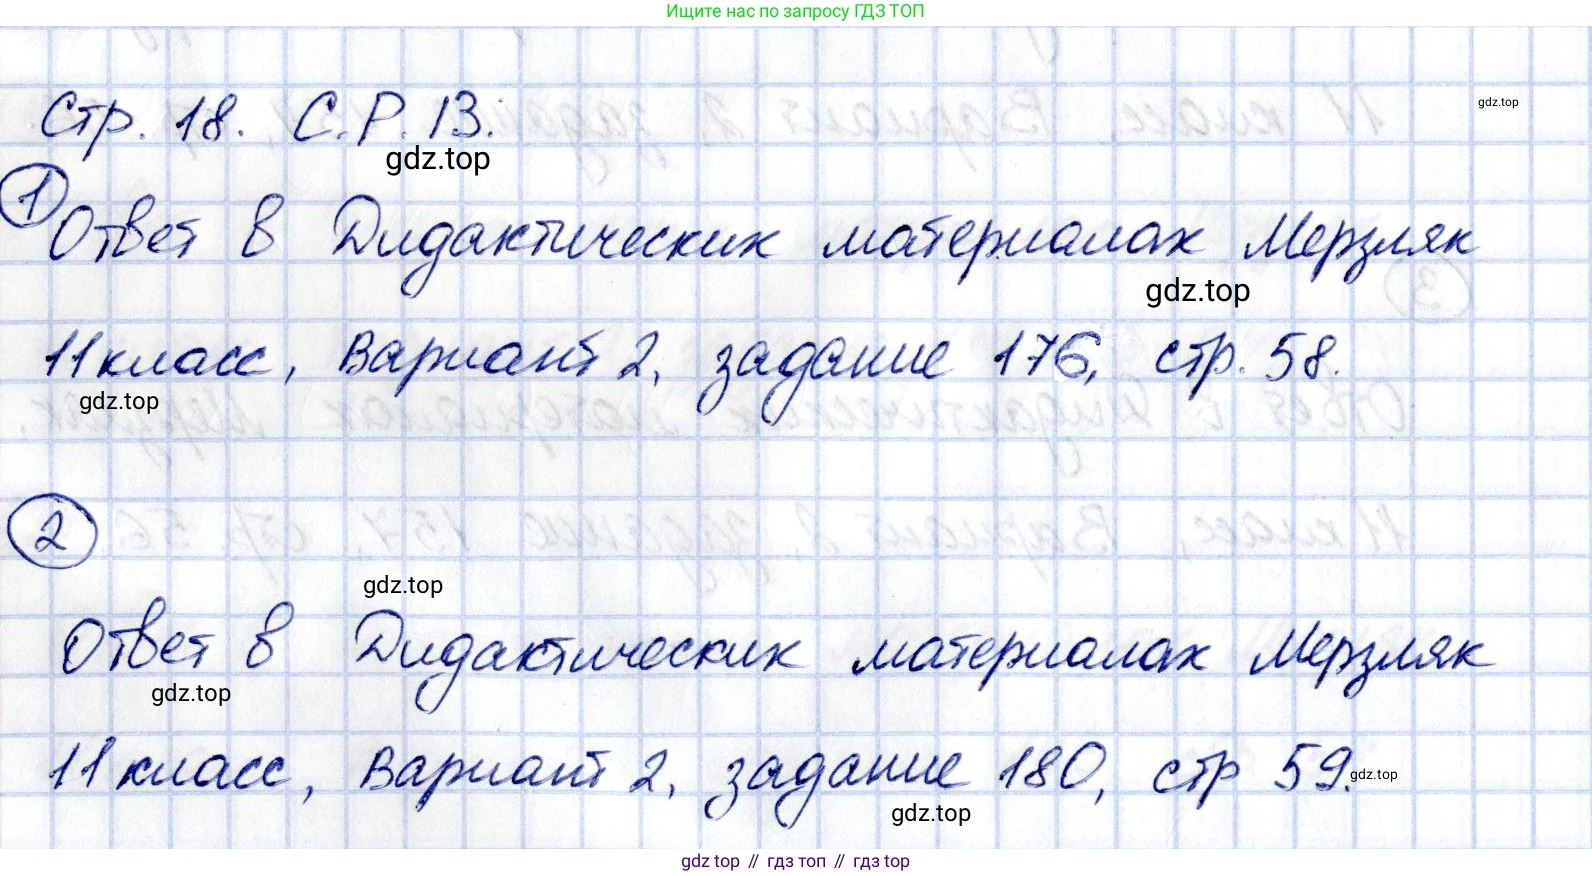 Ищите нас по запросу ГДЗ ТОП
Стр. 18. С.Р. 13.
gdz.top
gdz.top
1
Ответ в Дидактических материалах Мерзляк
gdz.top
11 класс, Вариант 2, задание 176, стр. 58.
gdz.top
2
gdz.top
Ответ в Дидактических материалах Мерзляк
gdz.top
11 класс, Вариант 2, задание 180, стр 59.
gdz.top
gdz.top
gdz top // гдз топ // gdz top